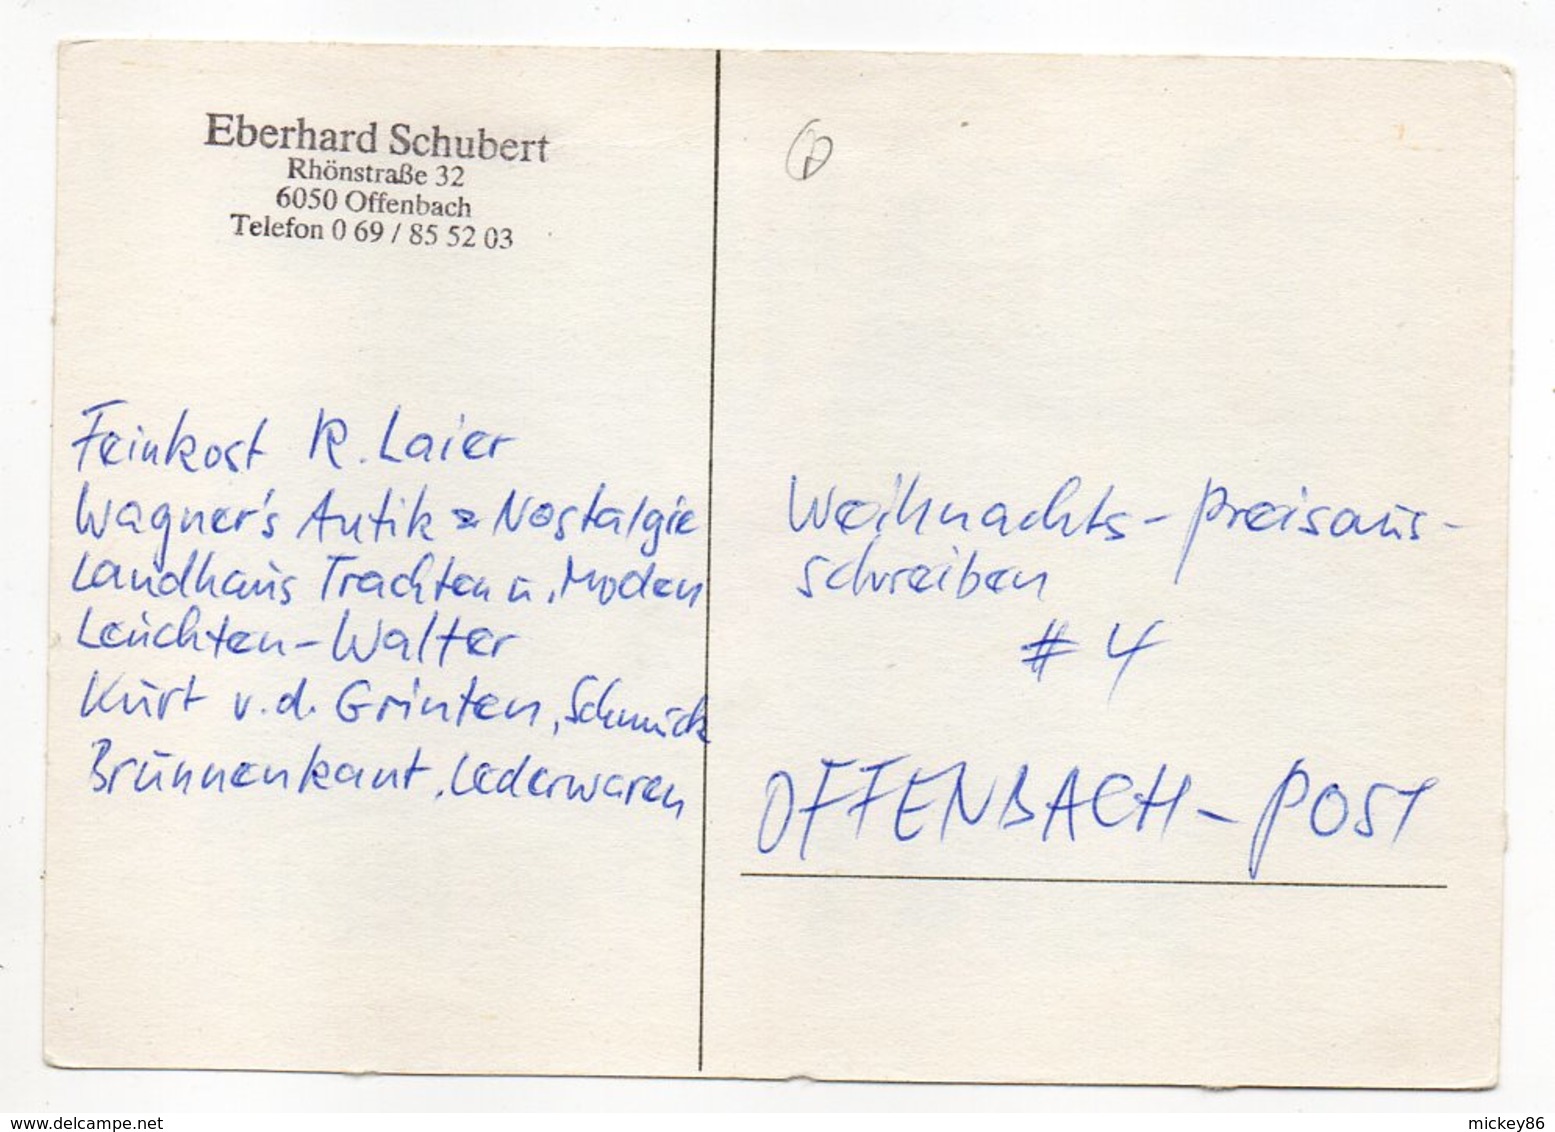 Eberhard Schubert
Rhönstraße 32
6050 Offenbach
Telefon 0 69 / 85 52 03
Feinkost R. Laier
Wagner's Antik & Nostalgie
Landhaus Trachten u. Moden
Leuchten-Walter
Kurt v.d. Grinten, Schmuck
Brunnenkant, Lederwaren
Weihnachts-Preisaus-
schreiben
# 4
OFFENBACH-POST
mickey86